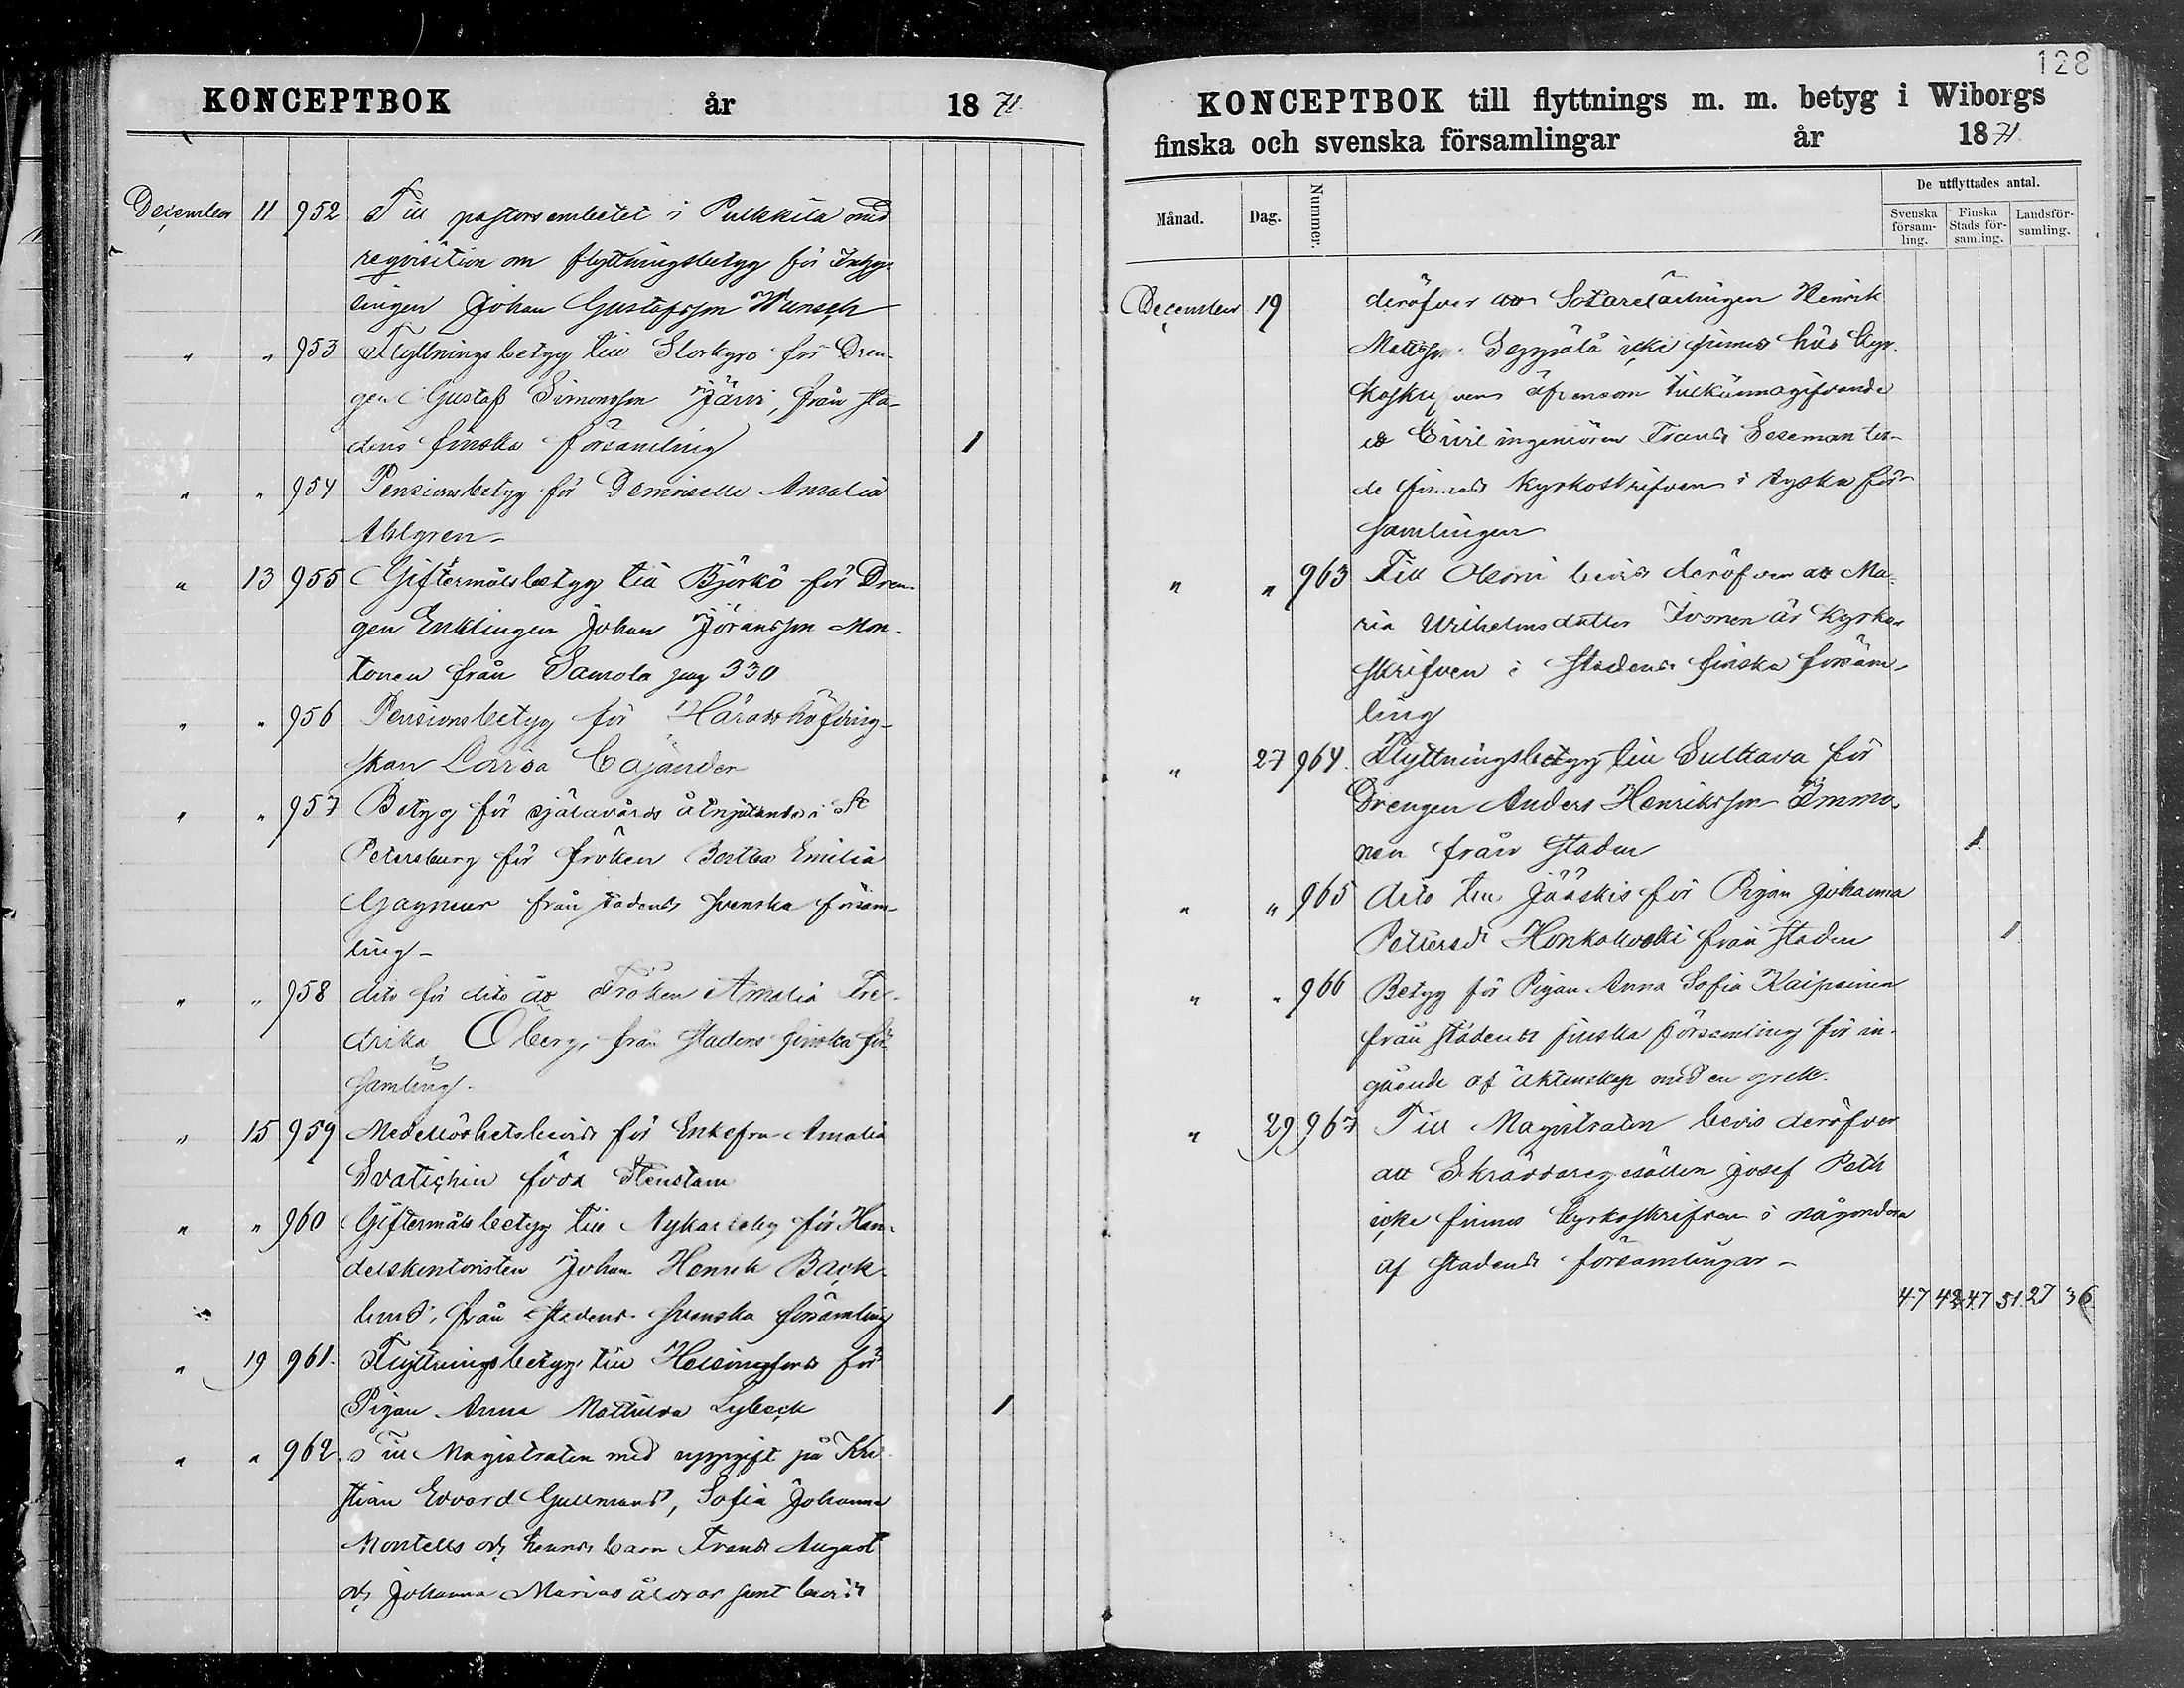 KONCEPTBOK år 1871
December 11 952 Till pastorsembetet i Pulkkila med
reqvisition om flyttningsbetyg för Inhys-
lingen Johan Gustafsson Wunsch
" " 953 Flyttningsbetyg till Storkyro för Dren-
gen Gustaf Simonsson Järvi, från sta-
dens finska församling 1
" " 954 Pensionsbetyg för Demoiselle Amalia
Ahlgren -
" 13 955 Giftermålsbetyg till Björkö för Dren-
gen Enklingen Johan Jöransson Mon-
tonen från Samola pag 330
" " 956 Pensionsbetyg för Häradshöfding-
skan Lovisa Cajander
" " 957 Betyg för själavårds åtnjutande i St
Petersburg för fröken Bertha Emilia
Gagneur från stadens svenska försam-
ling -
" " 958 dito för dito åt Fröken Amalia Fre-
drika Öberg, från stadens finska för-
samling.
" 15 959 Medellöshetsbevis för Enkefru Amalia
Svatichin född Stenstam
" " 960 Giftermålsbetyg till Nykarleby för Han-
delskontoristen Johan Henrik Back-
lund, från stadens svenska församling
" 19 961. Flyttningsbetyg till Helsingfors för
Pigan Anna Mathilda Lybeck 1
" " 962. Till Magistraten med uppgift på Kri-
stian Edvard Gullmans, Sofia Johanna
Montells och hennes barn Frans August
och Johanna Marias åldrar samt bevis
128
KONCEPTBOK till flyttnings m. m. betyg i Wiborgs
finska och svenska församlingar år 1871.
Månad. Dag. Nummer. De utflyttades antal.
Svenska församling. Finska Stads församling. Landsförsamling.
December 19 deröfver att Sotarelärlingen Henrik
Mattsson Seppälä icke finnes här kyr-
koskrifven äfvensom tillkännagifvande
att Civil ingeniören Frans Seseman tor-
de finnas kyrkoskrifven i tyska för-
samlingen
" " 963 Till bevis deröfver att Ma-
ria Wilhelmsdotter Ivonen är kyrko-
skrifven i stadens finska försam-
ling
" 27 964. Flyttningsbetyg till Sulkava för
Drengen Anders Henriksson Immo-
nen från staden 1.
" " 965 dito till Jääskis för Pigan Johanna
Pettersdr Honkakoski från staden 1.
" " 966 Betyg för Pigan Anna Sofia Kaipainen
från stadens finska församling för in-
gående af äktenskap med en grek.
" 29 967 Till Magistraten bevis deröfver
att Skräddaregesällen Josef Peth
icke finnes kyrkoskrifven i någondera
af stadens församlingar -
47 42 47 51 27 36